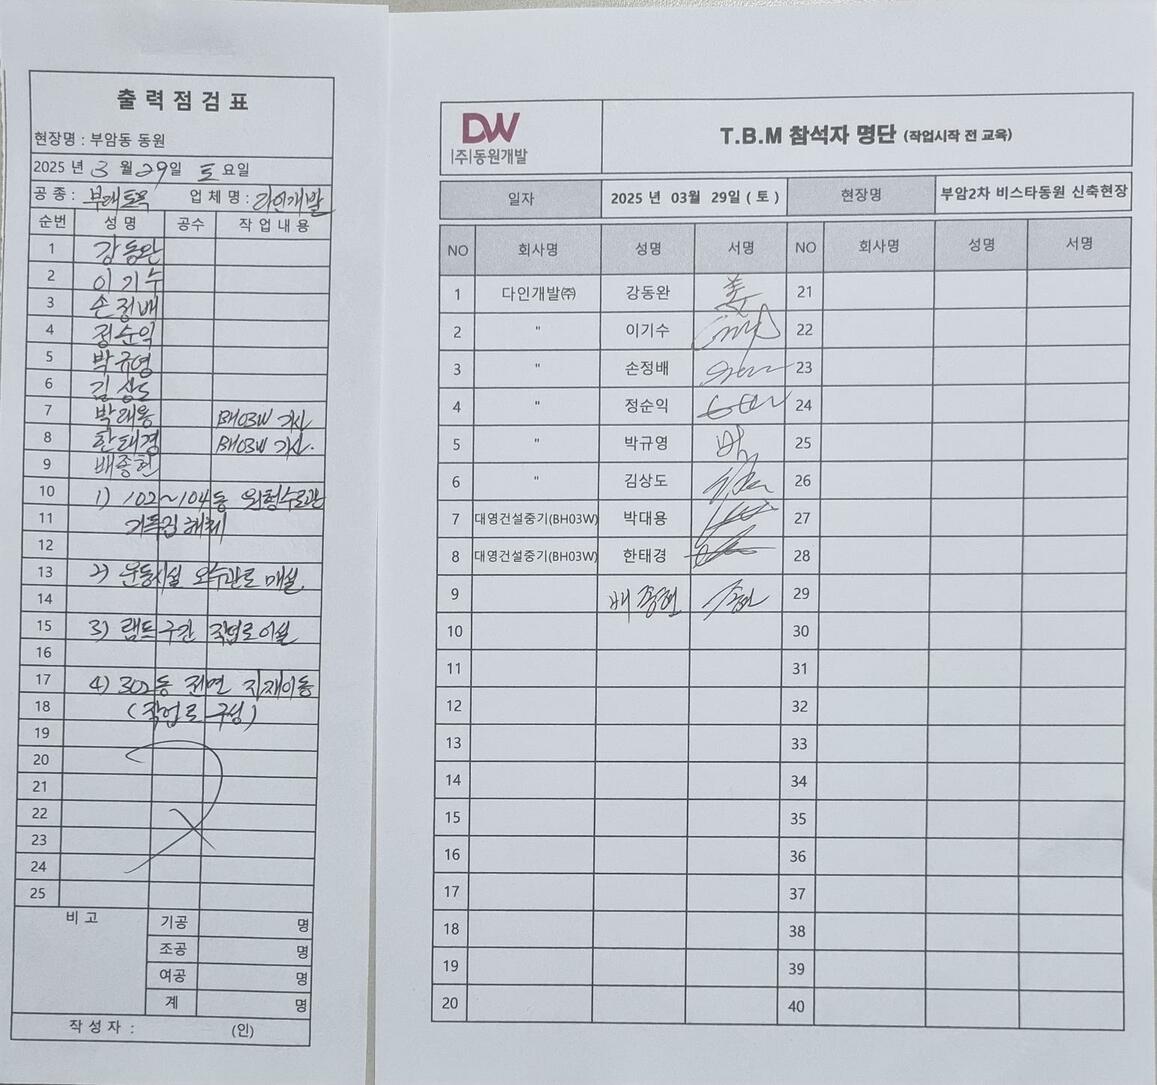 출 력 점 검 표
현장명 : 부암동 동원
2025 년 3 월 29일 토 요일
공 종 : 부대토목 업 체 명 : 다인개발
순번 성 명 공수 작 업 내 용
1 강동완
2 이기수
3 손정배
4 정순익
5 박규영
6 김상도
7 박대용 BH03W 기사
8 한태경 BH03W 기사.
9 배종현
10 1) 102~104동 원형수로관
11 거푸집 해체
12
13 2) 운동시설 오수관로 매설.
14
15 3) 램프구간 작업로이설
16
17 4) 302동 전면 자재이동
18 (작업로 구성)
19
20
21
22
23
24
25
비 고 기공 명
조공 명
여공 명
계 명
작 성 자 : (인)
DW
(주)동원개발
T.B.M 참석자 명단 (작업시작 전 교육)
일자 2025 년 03월 29일 ( 토 ) 현장명 부암2차 비스타동원 신축현장
NO 회사명 성명 서명 NO 회사명 성명 서명
1 다인개발㈜ 강동완 姜 21
2 " 이기수 22
3 " 손정배 23
4 " 정순익 24
5 " 박규영 25
6 " 김상도 26
7 대영건설중기(BH03W) 박대용 27
8 대영건설중기(BH03W) 한태경 28
9 배종현 29
10 30
11 31
12 32
13 33
14 34
15 35
16 36
17 37
18 38
19 39
20 40